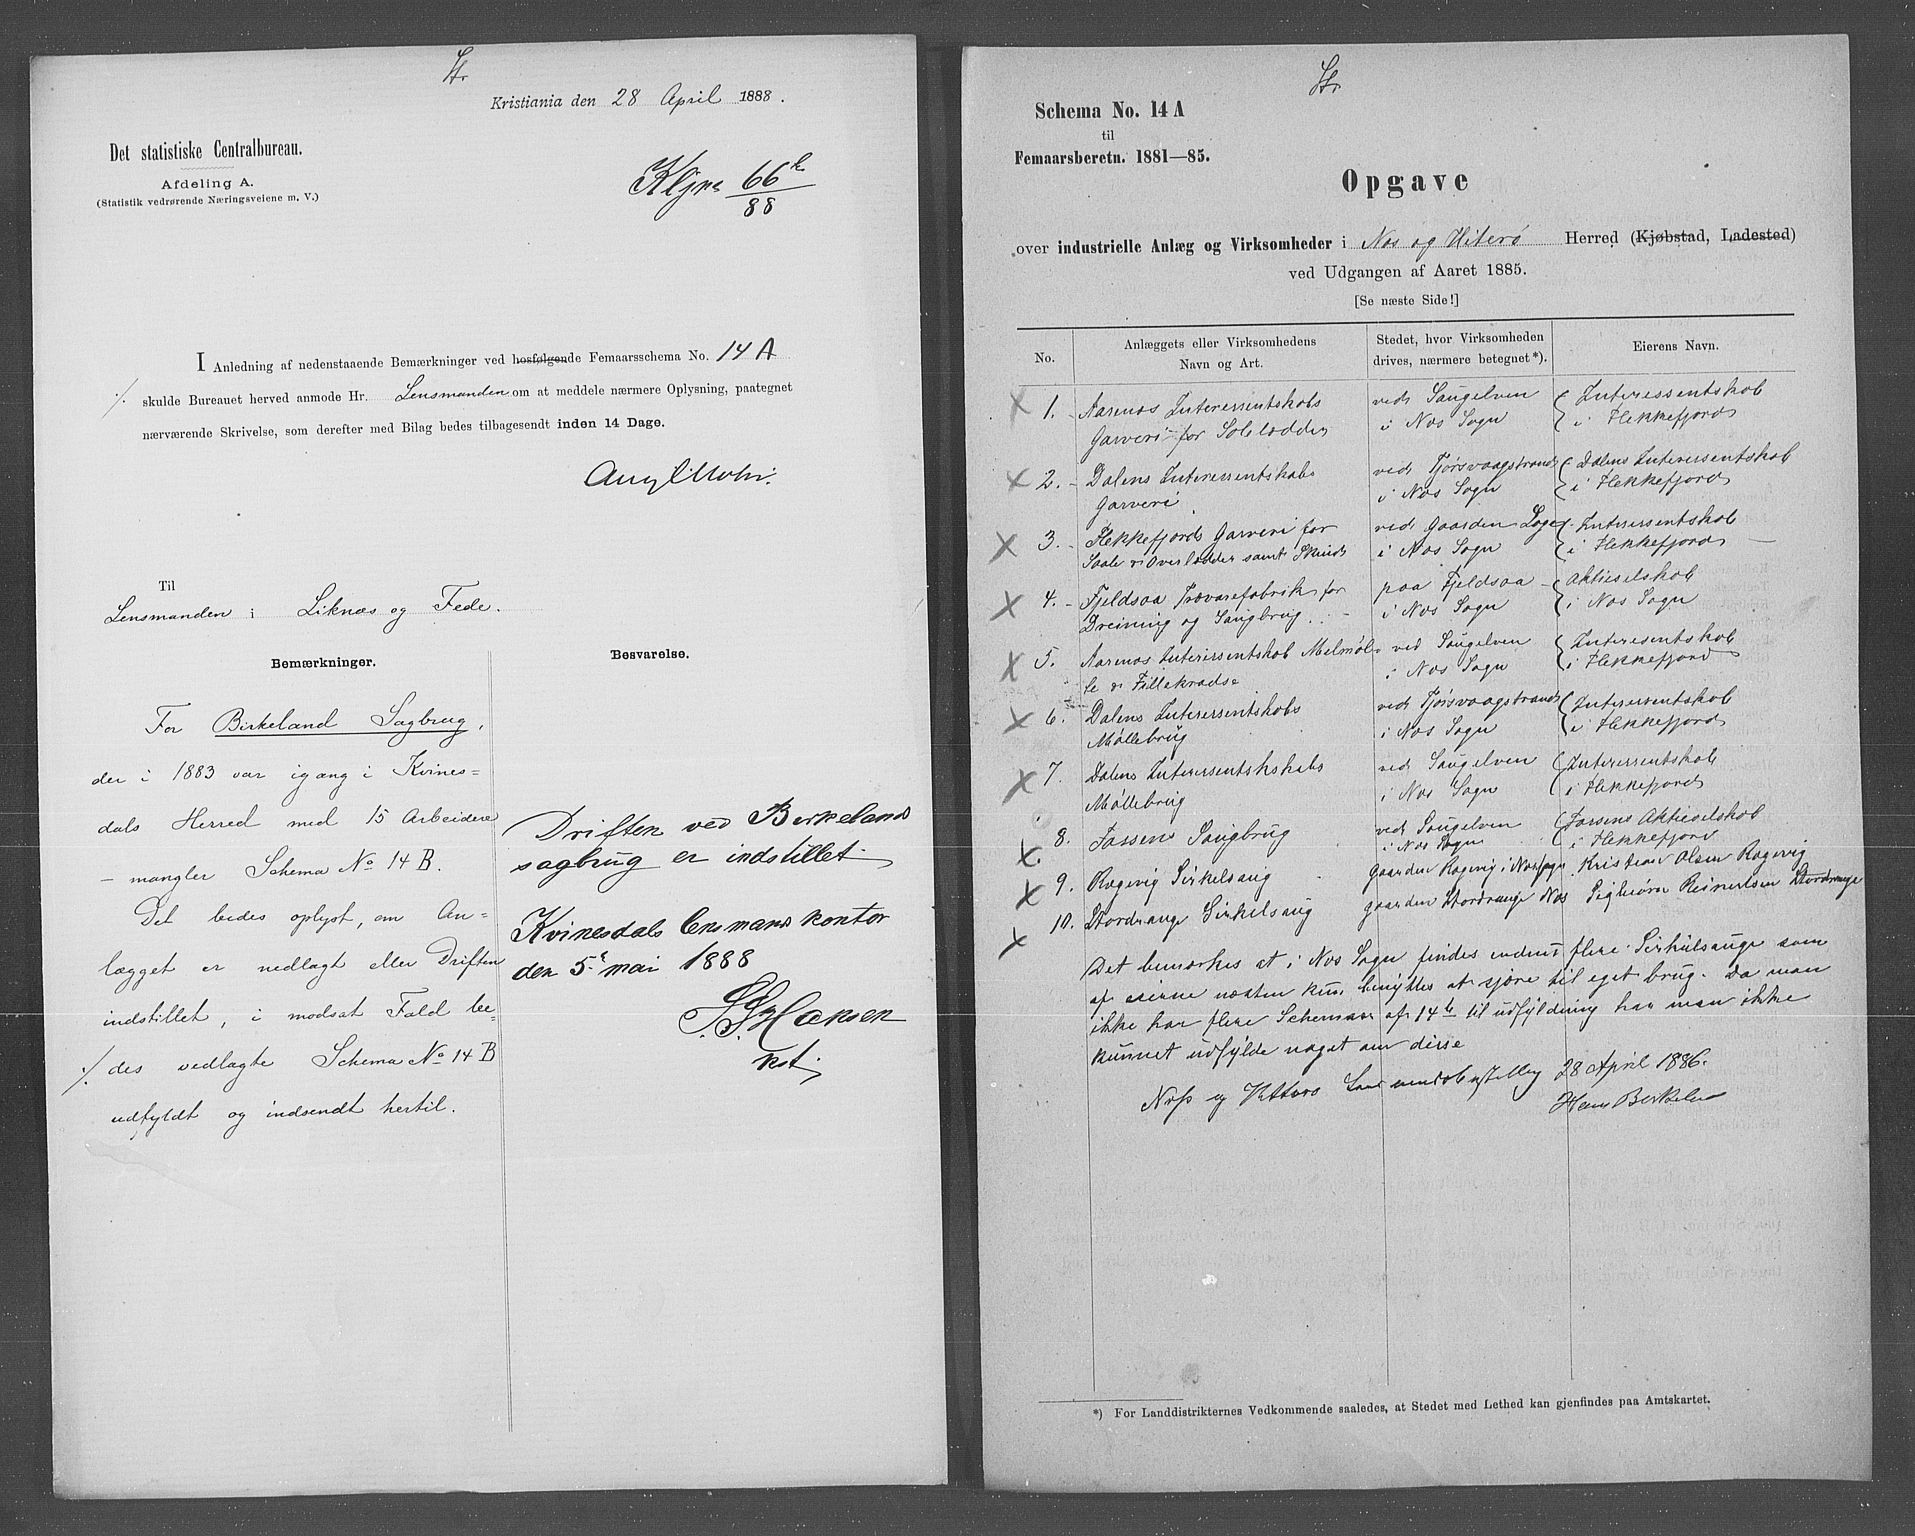 Kristiania den 28 April 1888.
Det statistiske Centralbureau.
Afdeling A.
(Statistik vedrørende Næringsveiene m. V.)
66
88
I Anledning af nedenstaaende Bemærkninger ved hosfølgende Femaarsschema No. 14 A
skulde Bureauet herved anmode Hr. Lensmanden om at meddele nærmere Oplysning, paategnet
nærværende Skrivelse, som derefter med Bilag bedes tilbagesendt inden 14 Dage.
Til
Lensmanden i Liknæs og Fede.
Bemærkninger.
For Birkeland Sagbrug,
der i 1883 var igang i Kvines=
dals Herred med 15 Arbeidere
– mangler Schema No 14 B.
Det bedes oplyst, om An=
lægget er nedlagt eller Driften
indstillet, i modsat Fald be=
des vedlagte Schema No 14 B
udfyldt og indsendt hertil.
Besvarelse.
Driften ved Birkelands
sagbrug er indstillet.
Kvinesdals lensmandskontor
den 5te mai 1888
Hansen
kst.
Schema No. 14 A
til
Femaarsberetn. 1881—85.
Opgave
over industrielle Anlæg og Virksomheder i Næs og Hiterø Herred (Kjøbstad, Ladested)
ved Udgangen af Aaret 1885.
[Se næste Side!]
No.
Anlæggets eller Virksomhedens
Navn og Art.
Stedet, hvor Virksomheden
drives, nærmere betegnet*).
Eierens Navn.
1. Aarenæs Interessentskabs ved Saugelven Interessentskab
Garveri for Solelædder i Næs Sogn i Flekkefjord
2. Dalens Interessentskabs ved Tjørsvaagstrand Dalens Interessentskab
Garveri i Næs Sogn i Flekkefjord
3. Flekkefjords Garveri for ved Gaarden Loge Interessentskab
Saale & Overlædder samt Skind i Næs Sogn i Flekkefjord
4. Fjeldsaa Trævarefabrik for paa Fjeldsaa Aktieselskab
Dreining og Saugbrug i Næs Sogn i Næs Sogn
5. Aarenæs Interessentskab Melmøl= ved Saugelven Interesentskab
le & Filleksradse i Næs Sogn i Flekkefjord
6. Dalens Interessentskabs ved Tjørsvaagstrand Interessentskab
Møllebrug i Næs Sogn i Flekkefjord
7. Dalens Interessentskabs ved Saugelven Interessentskab
Møllebrug i Næs Sogn i Flekkefjord
8. Fossens Saugbrug ved Saugelven Fossens Aktieselskab
i Næs Sogn i Flekkefjord
9. Ragevig Sirkelsaug Gaarden Ragevig i Næs Sogn Kristian Olsen Ragevig
10. Stordrange Sirkelsaug Gaarden Stordrange Næs Sigbiørn Reinertsen Stordrange
Det bemærkes at i Næs Sogn findes endnu flere Sirkulsauge som
af eierne næsten kun benyttes at skjære til eget brug. Da man
ikke har flere Schemaer af 14 b til udfyldning har man ikke
kunnet udfylde noget om disse
Næss og Hitterø Lensmandsbestilling 28 April 1886.
Hans Birkeland
*) For Landdistrikternes Vedkommende saaledes, at Stedet med Lethed kan gjenfindes paa Amtskartet.